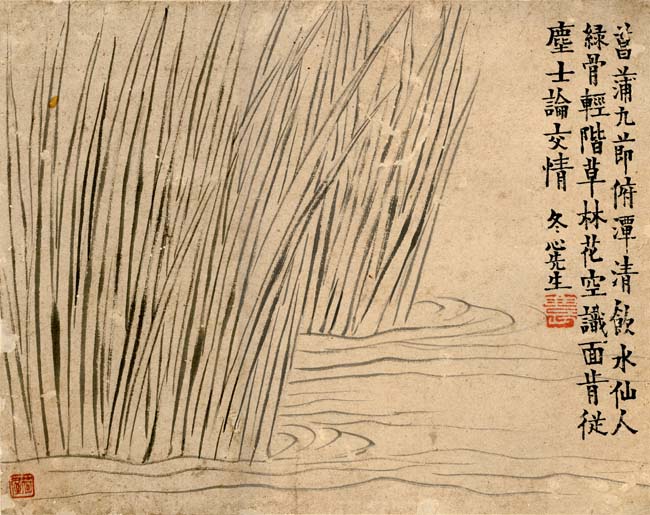 菖蒲九節俯潭清飲水仙人
緑骨輕階草林花空識面肯從
塵士論交情
冬心先生